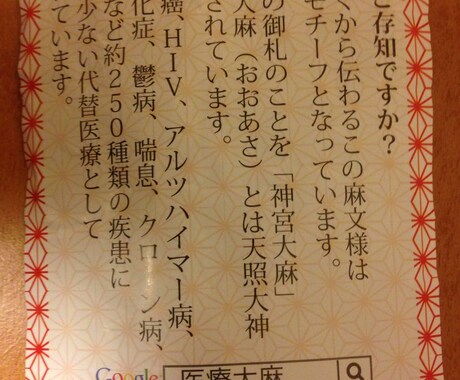 ご存知ですか？
くから伝わるこの麻文様は
モチーフとなっています。
の御札のことを「神宮大麻」
大麻（おおあさ）とは天照大神
されています。
癌、HIV、アルツハイマー病、
化症、鬱病、喘息、クローン病、
など約250種類の疾患に
少ない代替医療として
ています。
Google 医療大麻